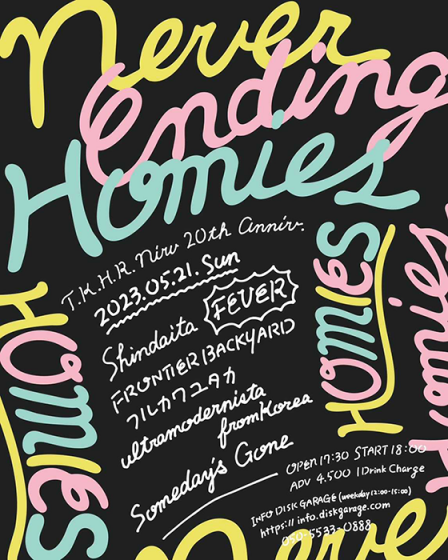 Never
Ending
Homies
T.K.H.R. Niw 20th anniv.
2023.05.21. Sun
Shindaita FEVER
FRONTIER BACKYARD
フルカワユタカ
ultramodernista
from Korea
Someday's Gone
OPEN 17:30 START 18:00
ADV 4.500 1 Drink Charge
INFO DISK GARAGE (weekday 12:00-15:00)
https://info.diskgarage.com
050-5533-0888
Homies
Homies
Never